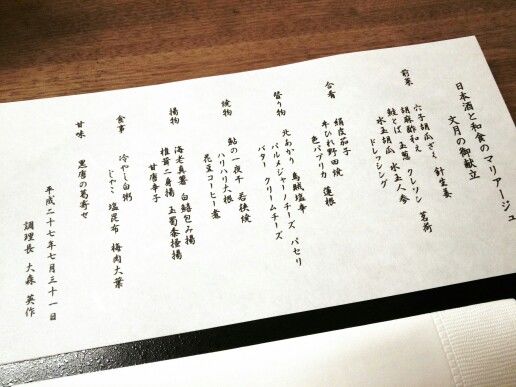 日本酒と和食のマリアージュ
文月の御献立
前菜
穴子胡瓜ざく 針生姜
胡麻酢和え クレソン 茗荷
鮭とば 玉葱 水玉人参
水玉胡瓜 ドレッシング
合肴
絹皮茄子
牛ひれ野田焼
色パプリカ 蓮根
替り物
北あかり 烏賊塩辛
パルメジャーノチーズ パセリ
バター クリームチーズ
焼物
鮎の一夜干 若狭焼
ハリハリ大根
花豆コーヒー煮
揚物
海老真薯 白鱚包み揚
椎茸二身揚 玉蜀黍掻揚
甘唐辛子
食事
冷やし白粥
じゃこ 塩昆布 梅肉大葉
甘味
黒唐の葛寄せ
平成二十七年七月三十一日
調理長 大森 英作